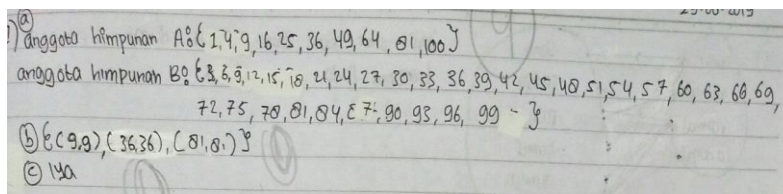 29-08-2019
1) a) anggota himpunan A: { 1, 4, 9, 16, 25, 36, 49, 64, 81, 100 }
anggota himpunan B: { 3, 6, 9, 12, 15, 18, 21, 24, 27, 30, 33, 36, 39, 42, 45, 48, 51, 54, 57, 60, 63, 66, 69,
72, 75, 78, 81, 84, 87, 90, 93, 96, 99 - }
b) { (9,9), (36,36), (81,81) }
c) iya